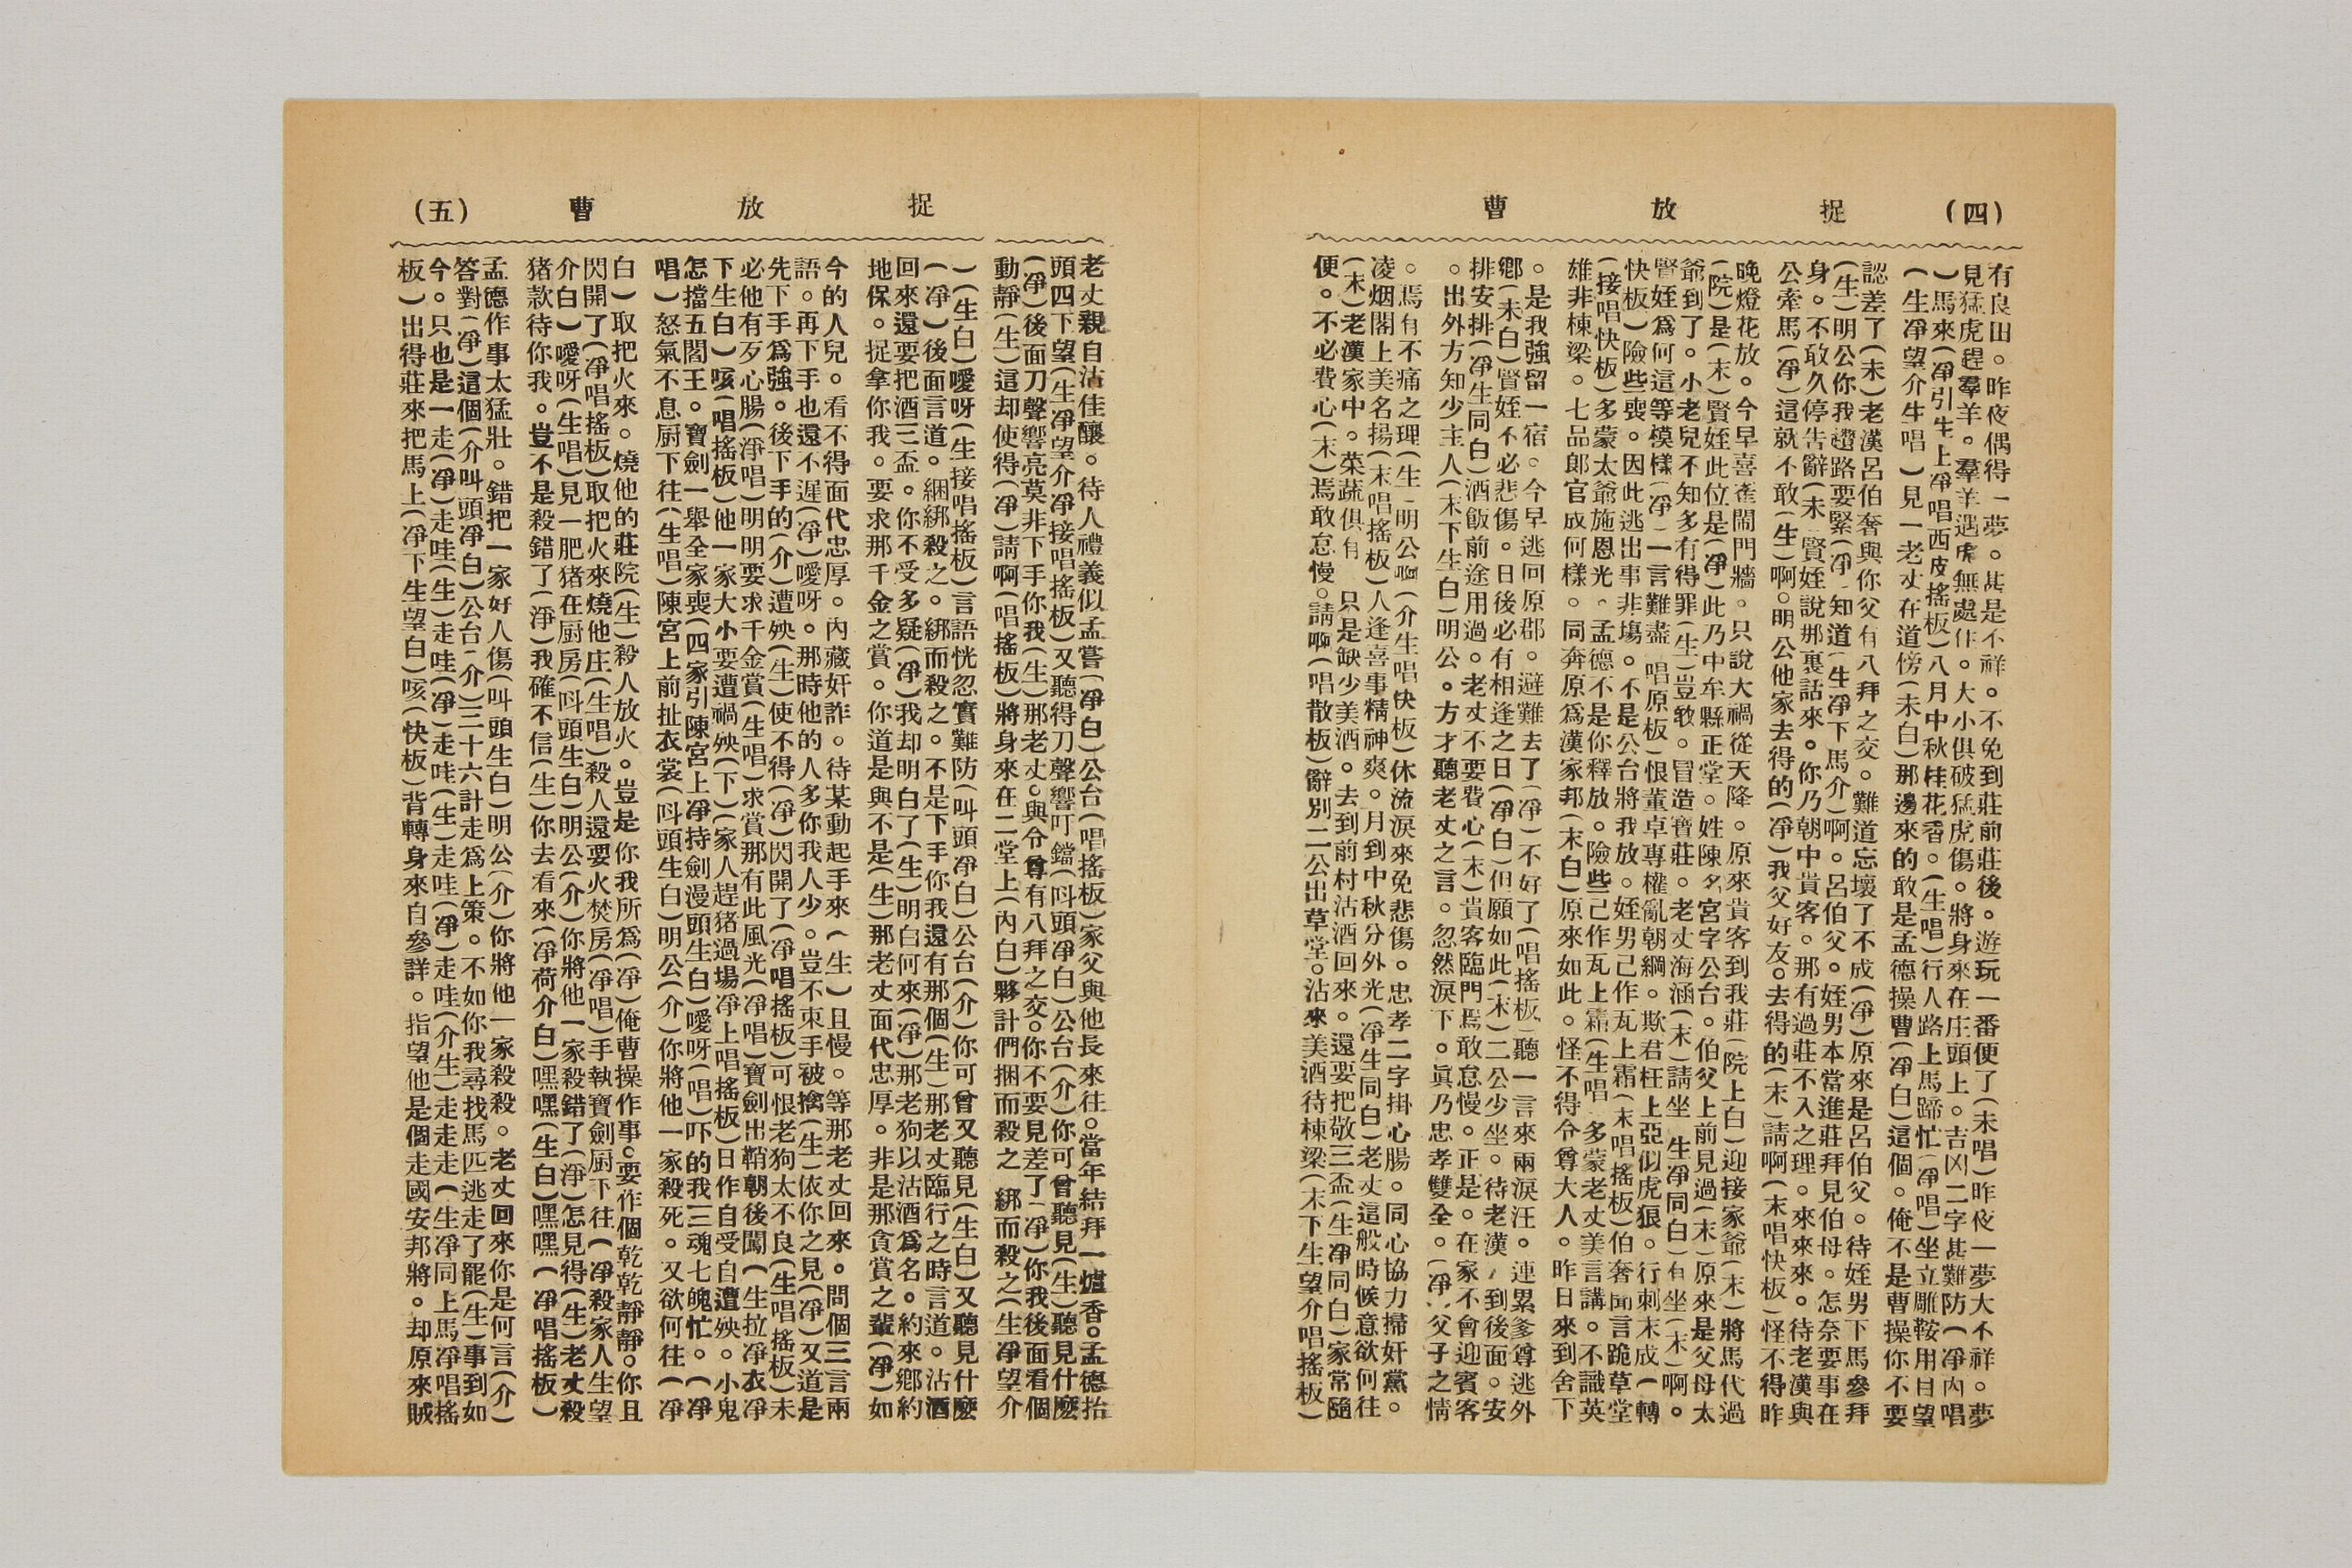 (四) 捉 放 曹
有良田。昨夜偶得一夢。甚是不祥。不免到莊前莊後。遊玩一番便了(末唱)昨夜一夢大不祥。夢
見猛虎趕羣羊。羣羊遇虎無處作。大小俱破猛虎傷。將身來在庄頭上。吉凶二字甚難防(凈內唱
)馬來(凈引生上凈唱西皮搖板)八月中秋桂花香。(生唱)行人路上馬蹄忙(凈唱)坐立雕鞍用目望
(生凈望介生唱)見一老丈在道傍(末白)那邊來的敢是孟德操曹(凈白)這個。俺不是曹操你不要
認差了(末)老漢呂伯奢與你父有八拜之交。難道忘壞了不成(凈)原來是呂伯父。待姪男下馬參拜
(生)明公你我趲路要緊(凈)知道(生凈下馬介)啊。呂伯父。姪男本當進莊拜見伯母。怎奈要事在
身。不敢久停告辭(末)賢姪說那裏話來。你乃朝中貴客。那有過莊不入之理。來來來。待老漢與
公牽馬(凈)這就不敢(生)啊。明公他家去得的(凈)我父好友。去得的(末)請啊(末唱快板)怪不得昨
晚燈花放。今早喜雀鬧門牆。只說大禍從天降。原來貴客到我莊(院上白)迎接家爺(末)將馬代過
(院)是(末)賢姪此位是(凈)此乃中牟縣正堂。姓陳名宮字公台。伯父上前見過(末)原來是父母太
爺到了。小老兒不知多有得罪(生)豈敢。冒造寶莊。老丈海涵(末)請坐 生凈同白)有坐(末)啊。
賢姪爲何這等模樣(凈)一言難盡 唱原板)恨董卓專權亂朝綱。欺君枉上亞似虎狼。行刺末成(轉
快板)險些喪。因此逃出事非塲。不是公台將我放。姪男己作瓦上霜(末唱搖板)伯奢聞言跪草堂
(接唱快板)多蒙太爺施恩光。孟德不是你釋放。險些己作瓦上霜(生唱 多蒙老丈美言講。不識英
雄非棟梁。七品郎官成何樣。同奔原爲漢家邦(末白)原來如此。怪不得令尊大人。昨日來到舍下
。是我強留一宿。今早逃回原郡。避難去了(凈)不好了(唱搖板)聽一言來兩淚汪。連累爹尊逃外
鄉(末白)賢姪不必悲傷。日後必有相逢之日(凈白)但願如此(末)二公少坐。待老漢 到後面。安
排安排(凈生同白)酒飯前途用過。老丈不要費心(末)貴客臨門焉敢怠慢。正是。在家不會迎賓客
。出外方知少主人(末下生白)明公。方才聽老丈之言。忽然淚下。眞乃忠孝雙全。(凈)父子之情
。焉有不痛之理(生)明公啊(介生唱快板)休流淚來免悲傷。忠孝二字掛心腸。同心協力掃奸黨。
凌烟閣上美名揚(末唱搖板)人逢喜事精神爽。月到中秋分外光(凈生同白)老丈這般時候意欲何往
(末)老漢家中。菜蔬俱有 只是缺少美酒。去到前村沽酒回來。還要把敬三盃(生凈同白)家常隨
便。不必費心(末)焉敢怠慢。請啊(唱散板)辭別二公出草堂。沽來美酒待棟梁(末下生望介唱搖板)
(五) 捉 放 曹
老丈親自沽佳釀。待人禮義似孟嘗(凈白)公台(唱搖板)家父與他長來往。當年結拜一爐香。孟德抬
頭四下望(生凈望介凈接唱搖板)又聽得刀聲響叮鐺(叫頭凈白)公台(介)你可曾聽見(生)聽見什麼
(凈)後面刀聲響亮莫非下手你我(生)那老丈。與令尊有八拜之交。你不要見差了(凈)你我後面看個
動靜(生)這却使得(凈)請啊(唱搖板)將身來在二堂上(內白)夥計們捆而殺之 綁而殺之(生凈望介
)(生白)噯呀(生接唱搖板)言語恍忽實難防(叫頭凈白)公台(介)你可曾又聽見(生白)又聽見什麼
(凈)後面言道。綑綁殺之。綁而殺之。不是下手你我還有那個(生)那老丈臨行之時言道。沽酒
回來還要把酒三盃。你不受多疑(凈)我却明白了(生)明白何來(凈)那老狗以沽酒爲名。約來鄉約
地保。捉拿你我。要求那千金之賞。你道是與不是(生)那老丈面代忠厚。非是那貪賞之輩(凈)如
今的人兒。看不得面代忠厚。內藏奸詐。待某動起手來(生)且慢。等那老丈回來。問個三言兩
語。再下手也還不遲(凈)噯呀。那時他的人多你我人少。豈不束手被擒(生)依你之見(凈)又道是
先下手爲強。後下手的(介)遭殃(生)使不得(凈)閃開了(凈唱搖板)可恨老狗太不良(生唱搖板)未
必他有歹心腸(淨唱)明明要求千金賞(生唱)求賞那有此風光(凈唱)寶劍出鞘朝後闖(生拉凈衣凈
下生白)咳(唱搖板)他一家大小要遭禍殃(下)(家人趕猪過場凈上唱搖板)日作自受自遭殃。小鬼
怎擋五閻王。寶劍一舉全家喪(四家引陳宮上凈持劍漫頭生白)噯呀(唱)吓的我三魂七魄忙。(凈
唱)怒氣不息厨下往(生唱)陳宮上前扯衣裳(叫頭生白)明公(介)你將他一家殺死。又欲何往(凈
白)取把火來。燒他的莊院(生)殺人放火。豈是你我所爲(凈)俺曹操作事。要作個乾乾靜靜。你且
閃開了(凈唱搖板)取把火來燒他庄(生唱)殺人還要火焚房(凈唱)手執寶劍厨下往(凈殺家人生望
介白)噯呀(生唱)見一肥猪在厨房(叫頭生白)明公(介)你將他一家殺錯了(淨)怎見得(生)老丈殺
猪款待你我。豈不是殺錯了(淨)我確不信(生)你去看來(凈荷介白)嘿嘿(生白)嘿嘿(凈唱搖板)
孟德作事太猛壯。錯把一家好人傷(叫頭生白)明公(介)你將他一家殺殺。老丈回來你是何言(介)
答對(凈)這個(介叫頭凈白)公台(介)三十六計走爲上策。不如你我尋找馬匹逃走了罷(生)事到如
今。只也是一走(凈)走哇(生)走哇(凈)走哇(生)走哇(凈)走哇(介生)走走走(生凈同上馬凈唱搖
板)出得莊來把馬上(凈下生望白)咳(快板)背轉身來自參詳。指望他是個走國安邦將。却原來賊